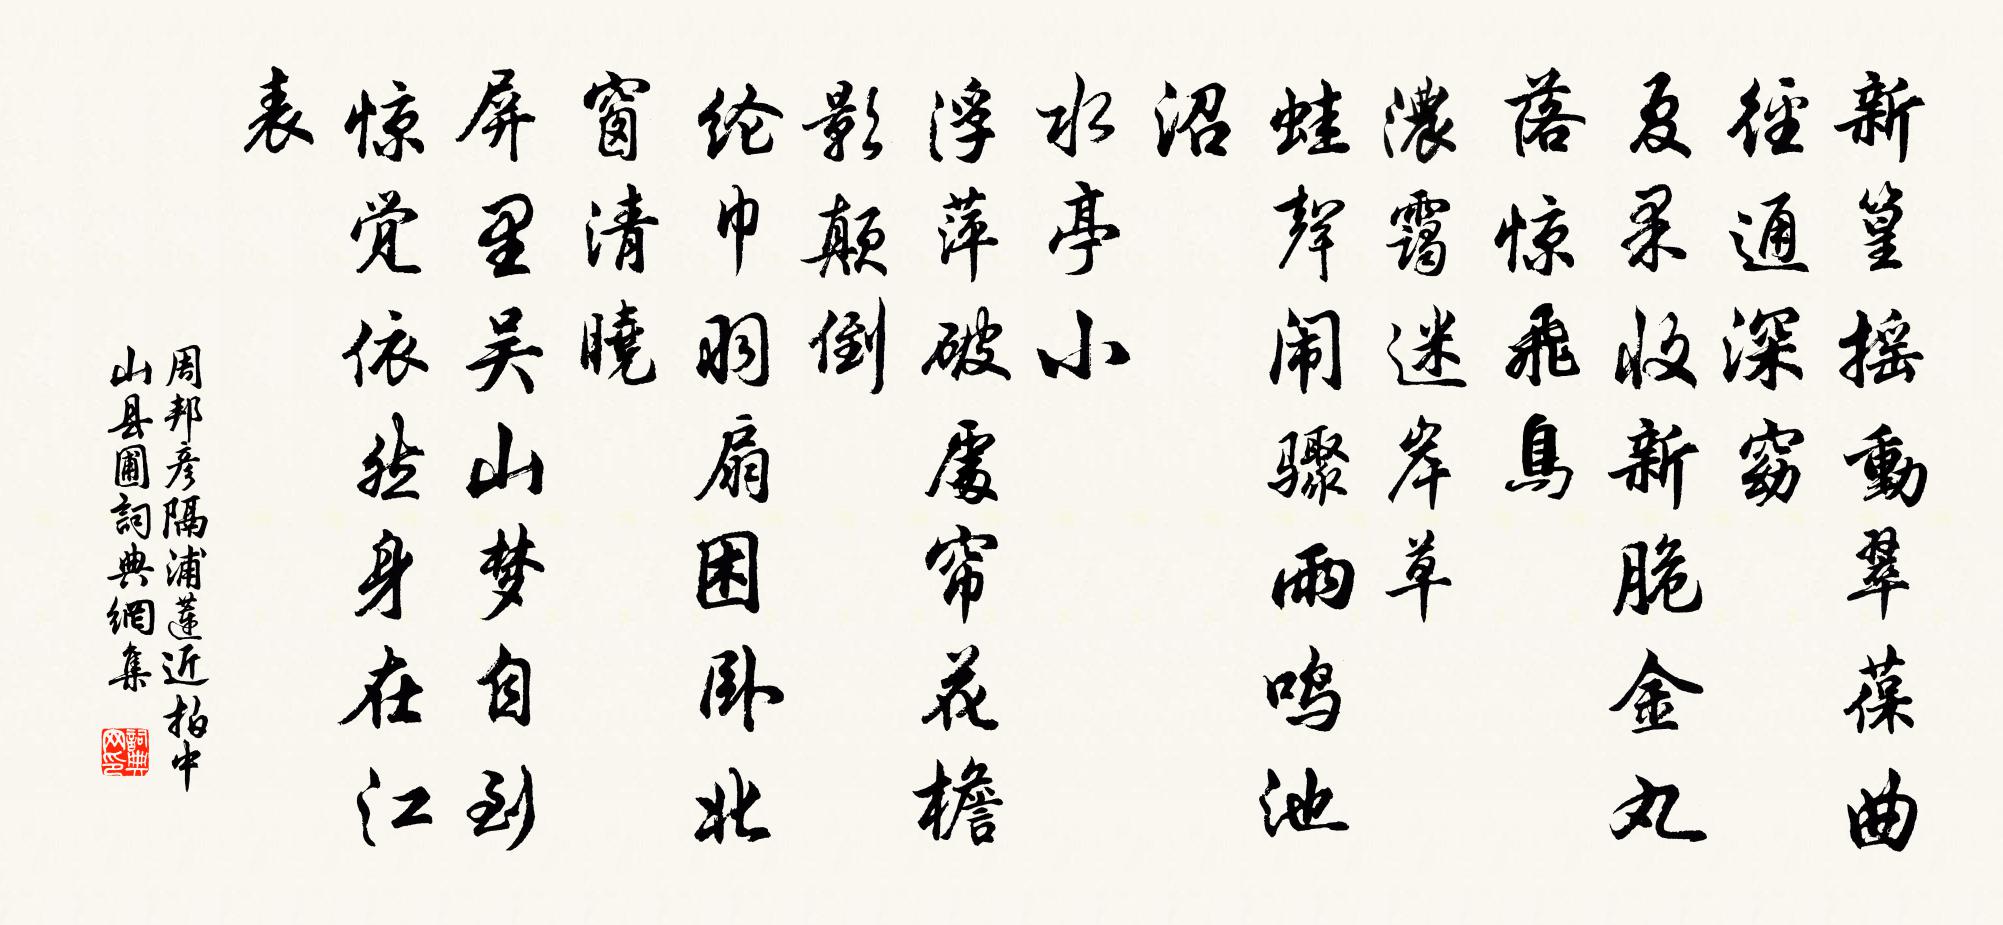 新篁摇動翠葆曲
徑通深窈
夏果收新脆金丸
落惊飛鳥
濃靄迷岸草
蛙聲闹驟雨鸣池
沼
水亭小
浮萍破處帘花檐
影颠倒
纶巾羽扇困卧北
窗清曉
屏里吴山梦自到
惊觉依然身在江
表
周邦彦隔浦莲近拍中
山县圃詞典網集
詞典
网印